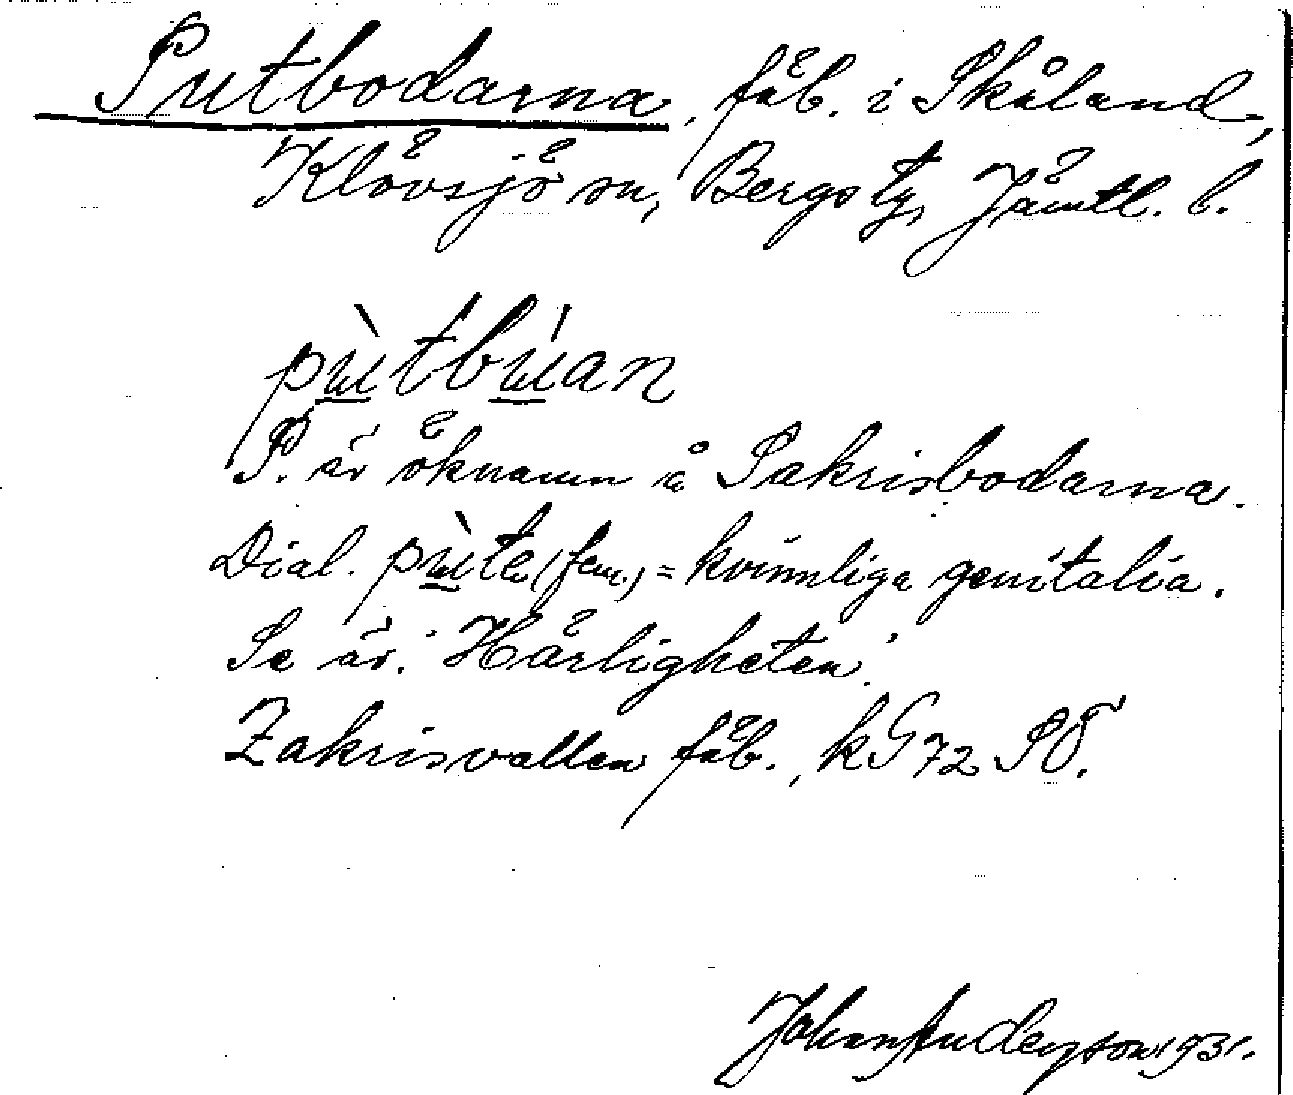 Putbodarna, fäb. i Skåland,
Klövsjö sn, Bergs tg, Jämtl. l.
pùtbúan
P. är öknamn å Sakrisbodarna.
Dial. pùte (fem.) = kvinnliga genitalia.
Se äv. "Härligheten".
Zakrisvallen fäb., kG72 SO.
Johan Anderson 1931.